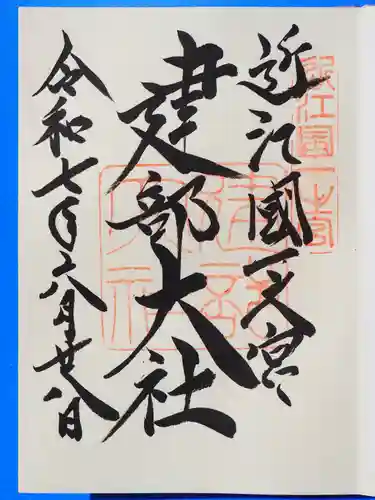 近江國一之宮
建部大社
令和七年六月廿八日
近江國一之宮
建部大社